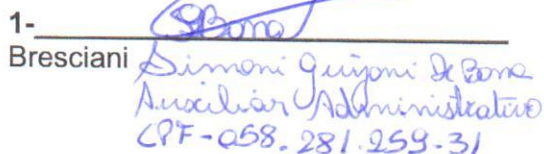 1- SBona
Bresciani Simoni Guizoni De Bona
Auxiliar Administrativo
CPF-058.281.259-31